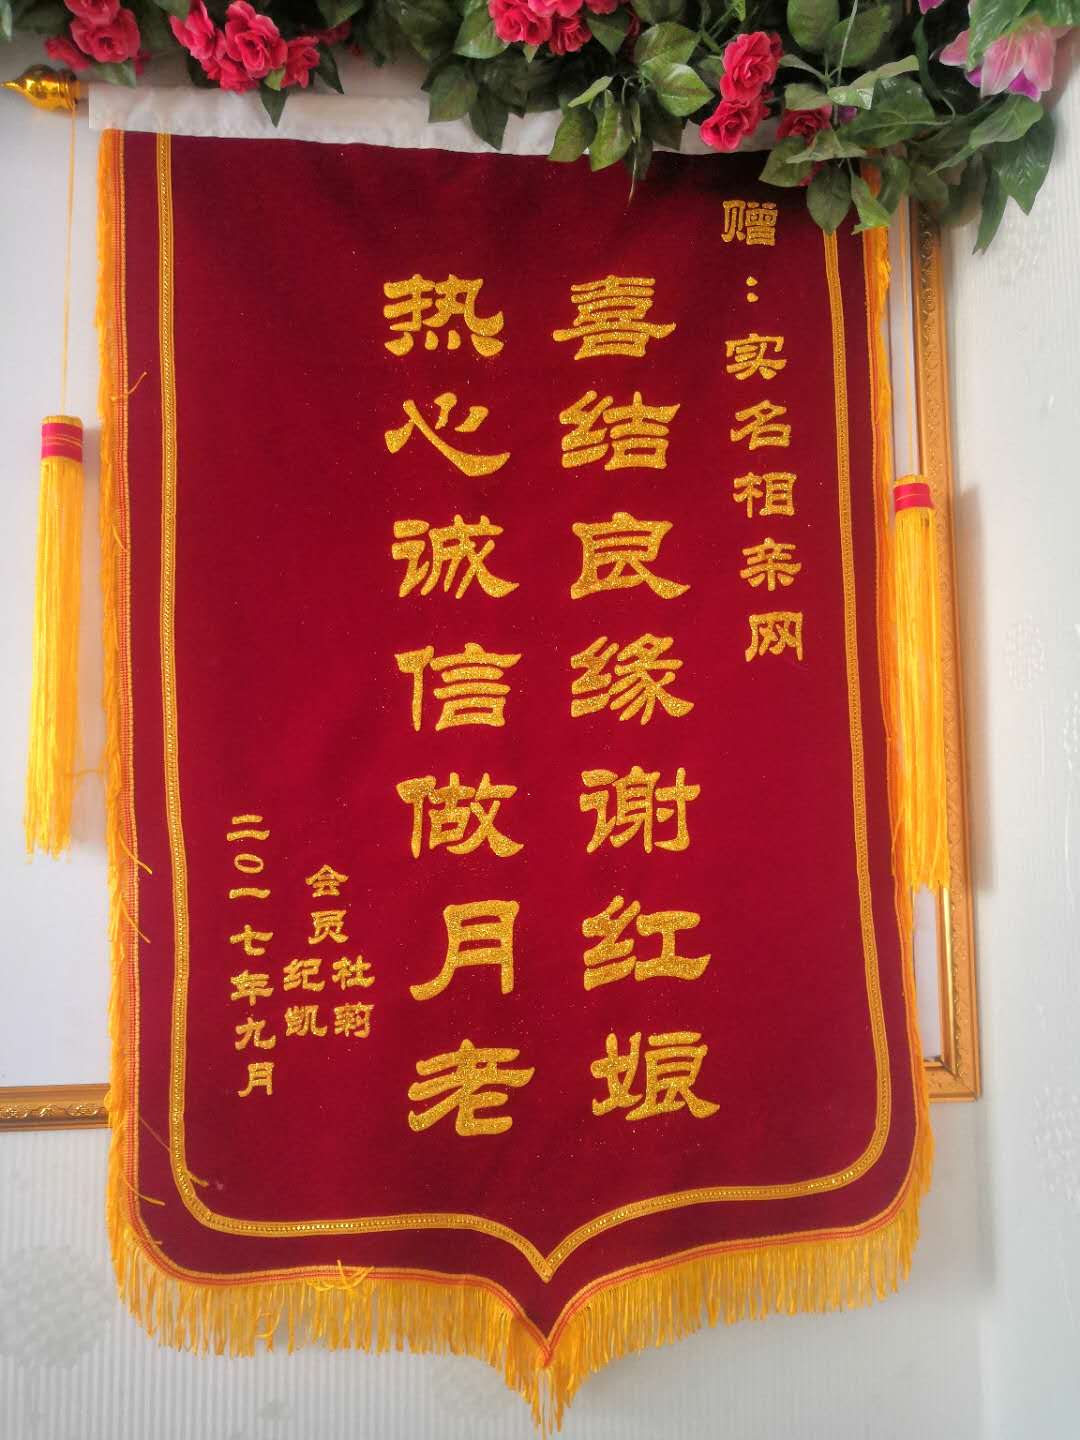 赠：实名相亲网
喜结良缘谢红娘
热心诚信做月老
会员杜莉
纪凯
二〇一七年九月